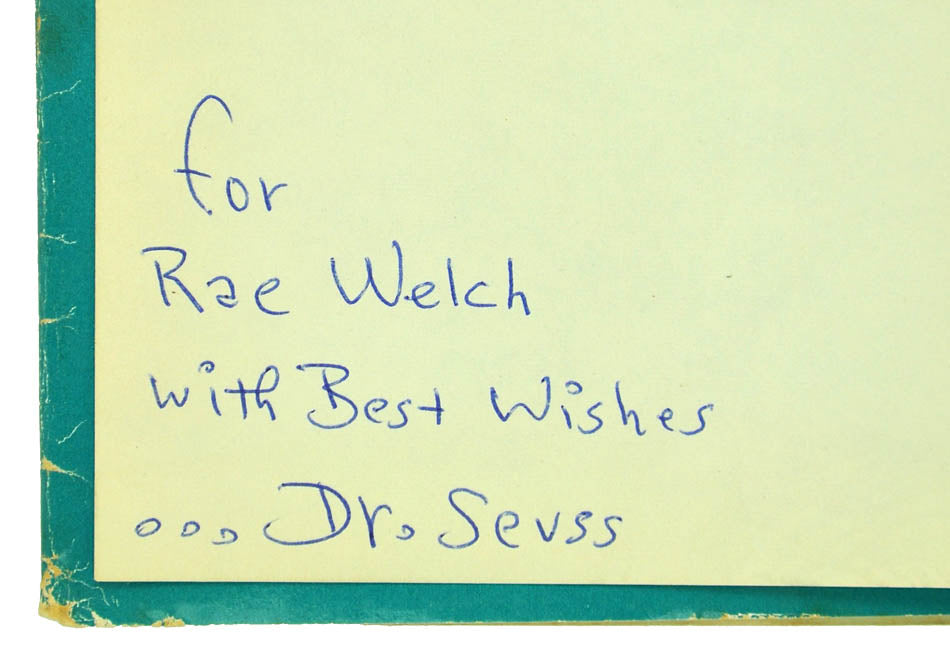 for
Rae Welch
with Best Wishes
... Dr. Seuss